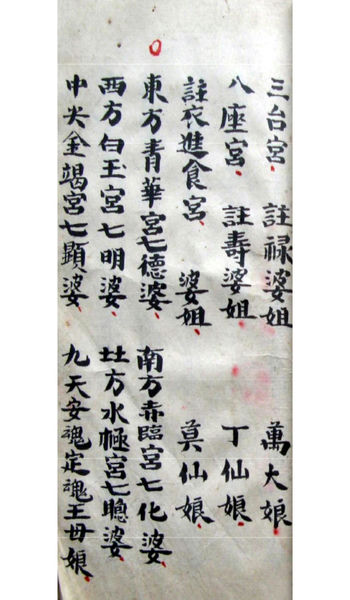 三台宮、註祿婆姐　萬大娘、
八座宮、註壽婆姐、丁仙娘、
註衣進食宮、婆姐、莫仙娘、
東方青華宮七德婆、南方赤臨宮七化婆、
西方白玉宮七明婆、北方水極宮七聰婆、
中央金竭宮七顯婆、九天安魂定魂王母娘、